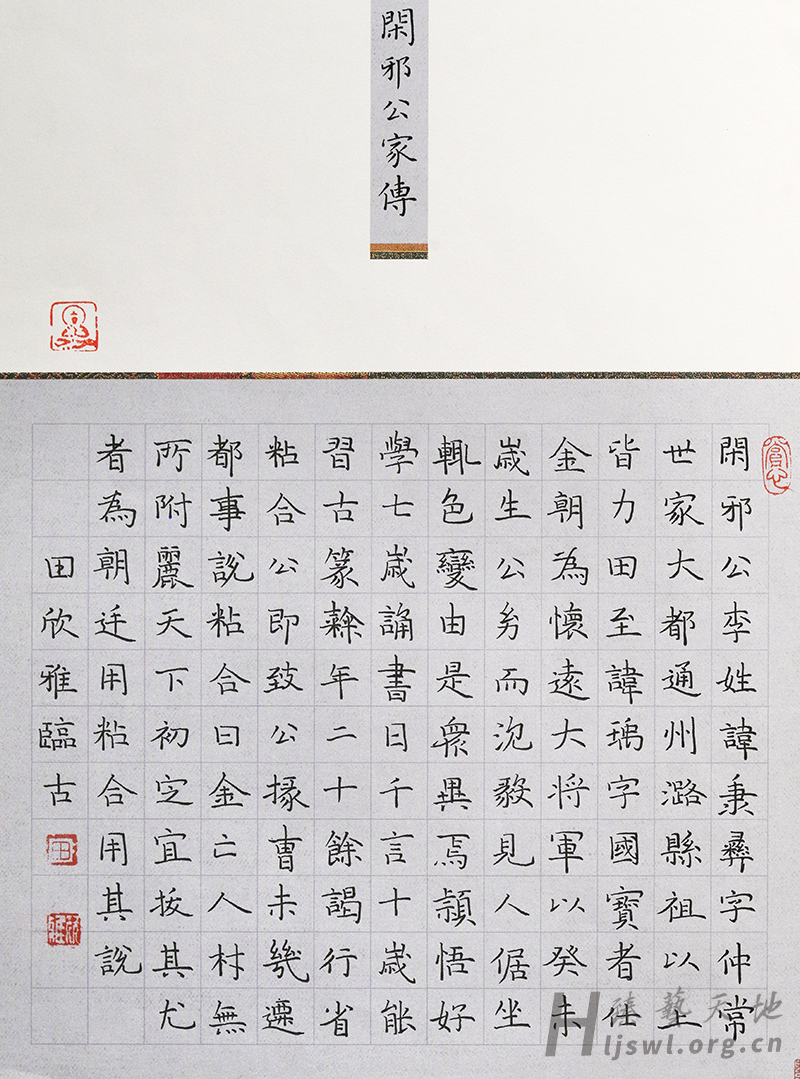 閑邪公家傳
閑邪公李姓諱秉彝字仲常
世家大都通州潞縣祖以上
皆力田至諱瑀字國寶者仕
金朝為懷遠大将軍以癸未
歲生公幼而沉毅見人倨坐
輒色變由是衆異焉穎悟好
學七歲誦書日千言十歲能
習古篆隸年二十餘謁行省
粘合公即致公掾曹未幾遷
都事說粘合曰金亡人材無
所附麗天下初定宜拔其尤
者為朝廷用粘合用其說
田欣雅臨古
田
欣雅
藝天地
Hljswl.org.cn